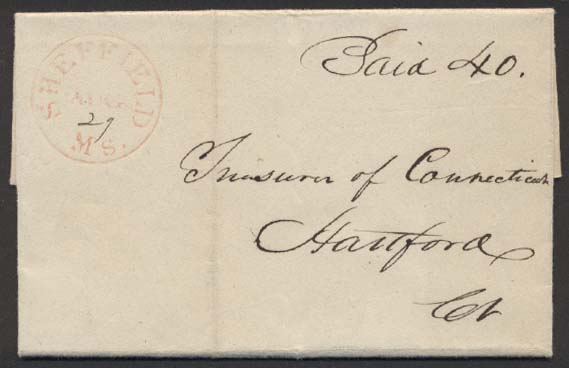 Paid 40.
SHEFFIELD
29
MS.
Treasurer of Connecticut
Hartford
Ct